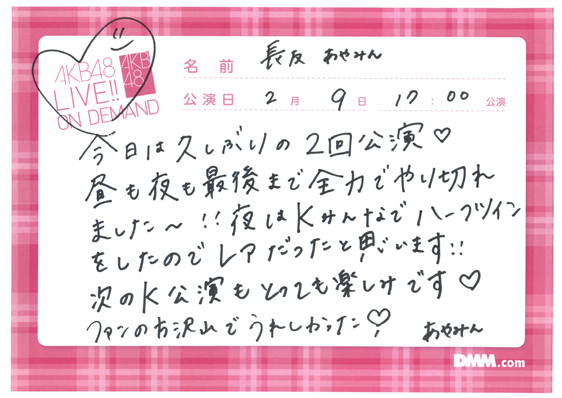 AKB48
LIVE!!
ON DEMAND
AKB
48
名前 長友 あやみん
公演日 2月 9日 17:00 公演
今日は久しぶりの2回公演♡
昼も夜も最後まで全力でやり切れ
ました〜!!夜はKみんなでハーフツイン
をしたのでレアだったと思います!!
次のK公演もとっても楽しみです♡
ファンの方沢山でうれしかった♡
あやみん
DMM.com